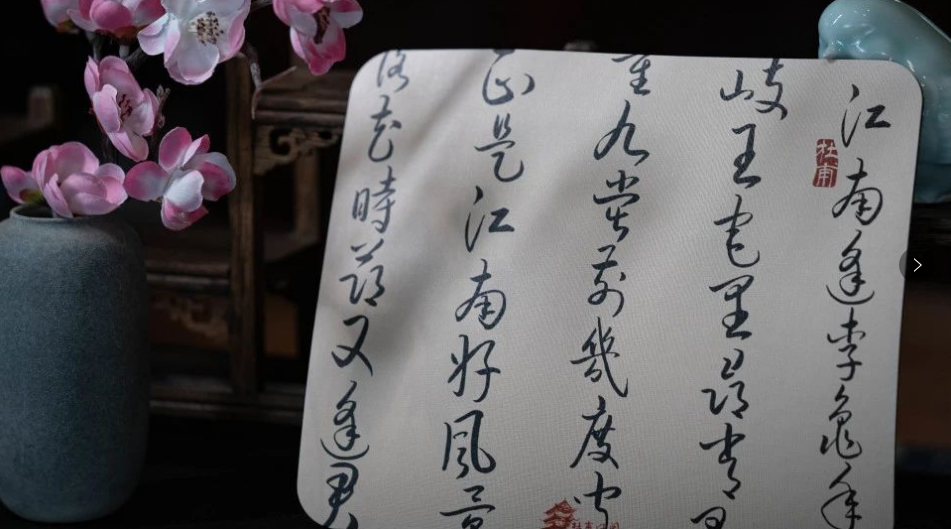 江南逢李龜年
杜甫
岐王宅里尋常見
崔九堂前幾度聞
正是江南好風景
落花時節又逢君